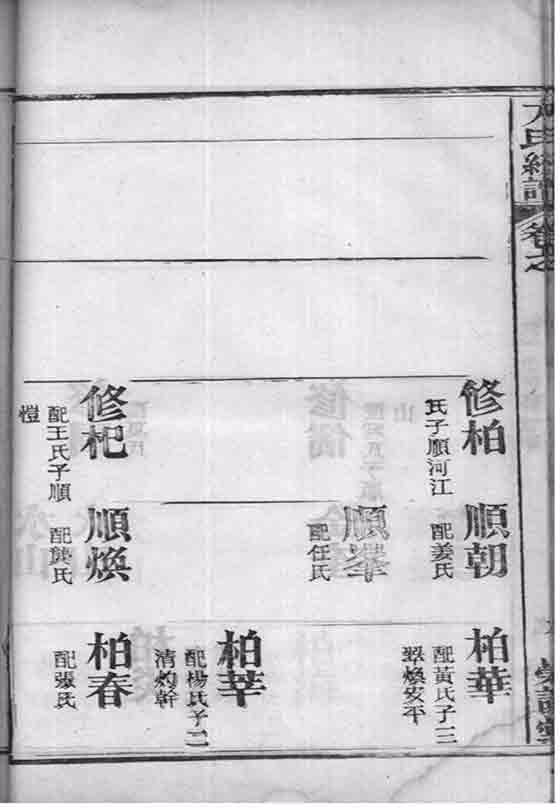 氏續譜
卷之
修柏
氏子順河江
順朝
配姜氏
柏華
配黃氏子三
順
配任氏
柏莘
配楊氏子二
清灼幹
修杞
配王氏子順
愷
順煥
配龔氏
柏春
配張氏